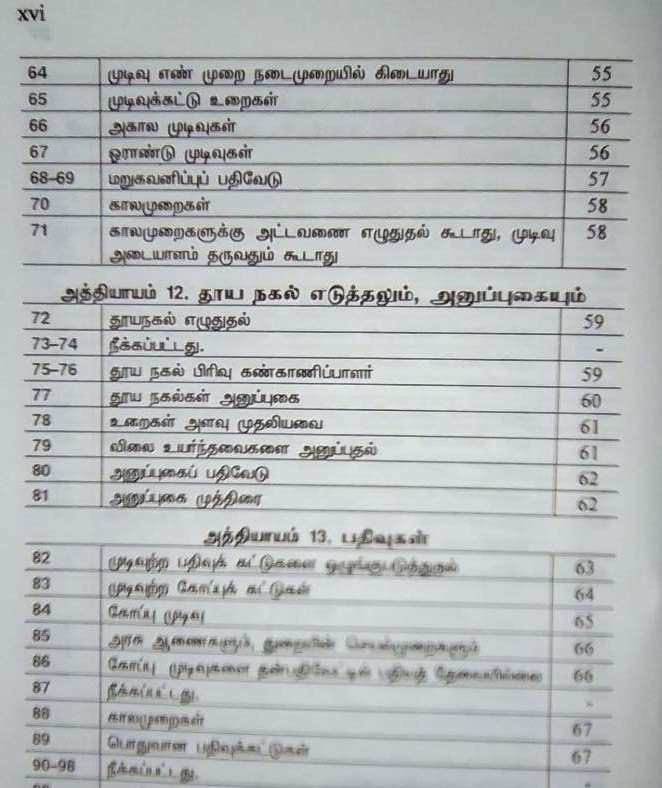 xvi
64 முடிவு எண் முறை நடைமுறையில் கிடையாது 55
65 முடிவுக்கட்டு உறைகள் 55
66 அகால முடிவுகள் 56
67 ஓராண்டு முடிவுகள் 56
68–69 மறுகவனிப்புப் பதிவேடு 57
70 காலமுறைகள் 58
71 காலமுறைகளுக்கு அட்டவணை எழுதுதல் கூடாது, முடிவு 58
அடையாளம் தருவதும் கூடாது
அத்தியாயம் 12. தூய நகல் எடுத்தலும், அனுப்புகையும்
72 தூயநகல் எழுதுதல் 59
73–74 நீக்கப்பட்டது. -
75–76 தூய நகல் பிரிவு கண்காணிப்பாளர் 59
77 தூய நகல்கள் அனுப்புகை 60
78 உறைகள் அளவு முதலியவை 61
79 விலை உயர்ந்தவைகளை அனுப்புதல் 61
80 அனுப்புகைப் பதிவேடு 62
81 அனுப்புகை முத்திரை 62
அத்தியாயம் 13. பதிவுகள்
82 முடிவுற்ற பதிவுக் கட்டுகளை ஒழுங்குபடுத்துதல் 63
83 முடிவுற்ற கோப்புக் கட்டுகள் 64
84 கோப்பு முடிவு 65
85 அரசு ஆணைகளும், துறையின் செயன்முறைகளும் 66
86 கோப்பு முடிவுகளை தன்பதிவேட்டில் பதியத் தேவையில்லை 66
87 நீக்கப்பட்டது. -
88 காலமுறைகள் 67
89 பொதுவான பதிவுக்கட்டுகள் 67
90–98 நீக்கப்பட்டது.